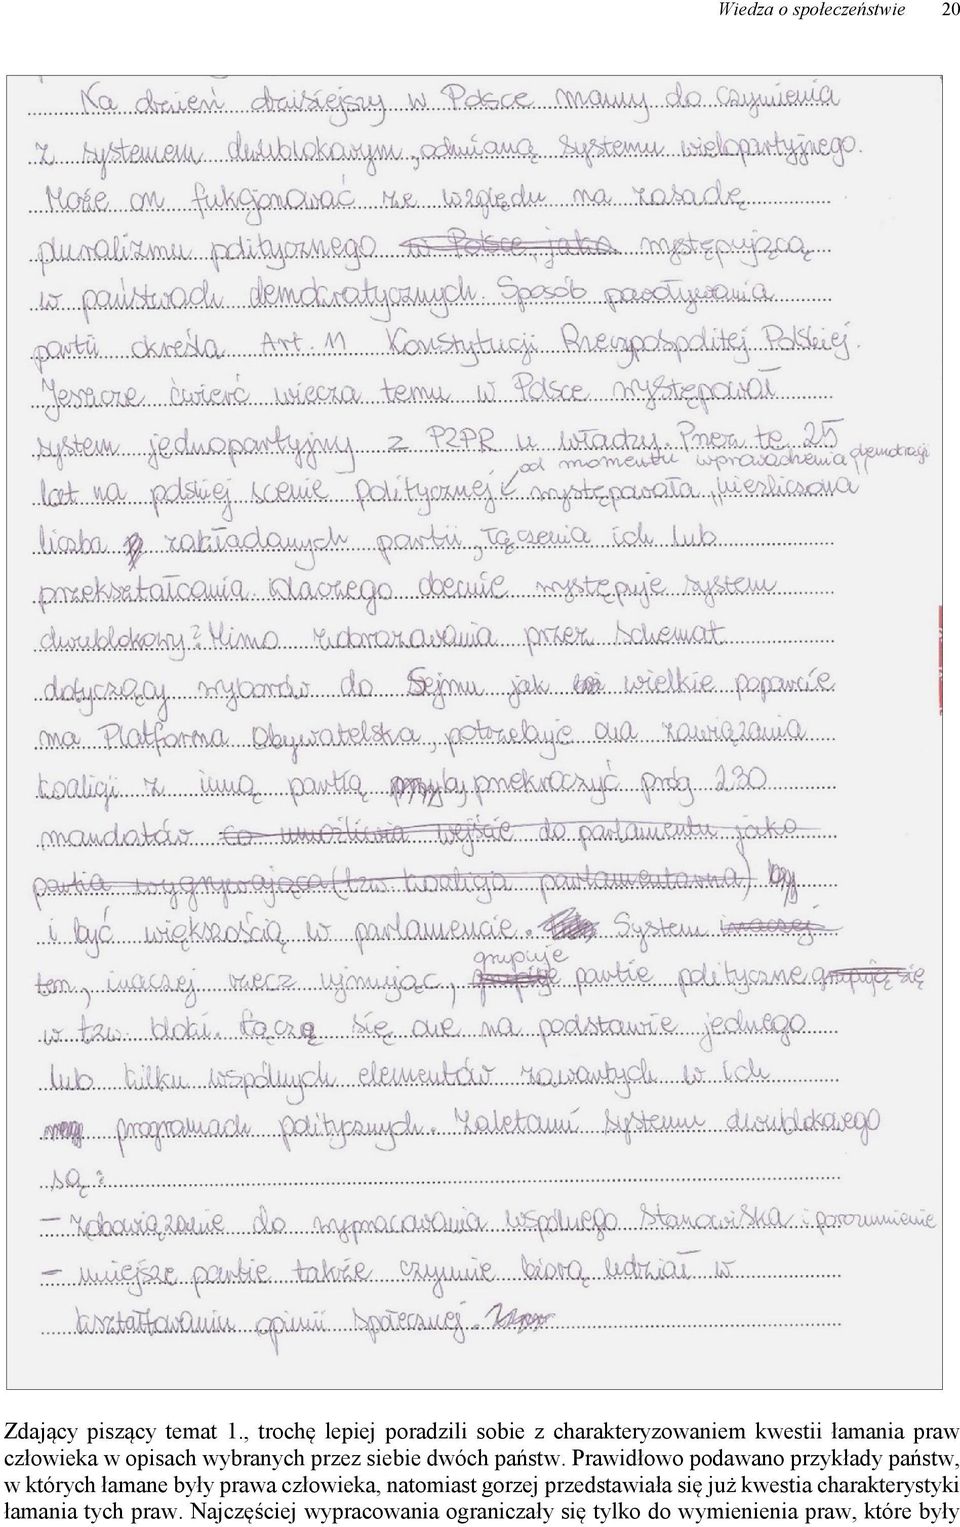 Wiedza o społeczeństwie 20
Na dzień dzisiejszy w Polsce mamy do czynienia
z systemem dwublokowym, odmianą systemu wielopartyjnego.
Może on fukcjonować ze względu na zasadę
pluralizmu politycznego w Polsce, jako występującą
w państwach demokratycznych. Sposób powoływania
partii określa Art. 11 Konstytucji Rzeczpospolitej Polskiej.
Jeszcze ćwierć wiecza temu w Polsce występował
system jednopartyjny z PZPR u władzy. Przez te 25
od momentu wprowadzenia demokracji
lat na polskiej scenie politycznej występowała "niezliczona
liczba zakładanych partii, łączenia ich lub
przekształcania. Dlaczego obecnie występuje system
dwublokowy? Mimo zobrazowania przez schemat
dotyczący wyborów do Sejmu jak wielkie poparcie
ma Platforma Obywatelska, potrzebuje ona zawiązania
koalicji z inną partią by przekroczyć próg 230
mandatów co umożliwia wejście do parlamentu jako
partia wygrywająca (tzw. koalicja parlamentarna) by
i być większością w parlamencie. System inaczej
grupuje
ten, inaczej rzecz ujmując, grupuje partie polityczne grupują się
w tzw. bloki. Łączą się one na podstawie jednego
lub kilku wspólnych elementów zawartych w ich
programach politycznych. Zaletami systemu dwublokowego
są:
- zobowiązanie do wypracowania wspólnego stanowiska i porozumienie
- mniejsze partie także czynnie biorą udział w
kształtowaniu opinii społecznej.
Zdający piszący temat 1., trochę lepiej poradzili sobie z charakteryzowaniem kwestii łamania praw
człowieka w opisach wybranych przez siebie dwóch państw. Prawidłowo podawano przykłady państw,
w których łamane były prawa człowieka, natomiast gorzej przedstawiała się już kwestia charakterystyki
łamania tych praw. Najczęściej wypracowania ograniczały się tylko do wymienienia praw, które były